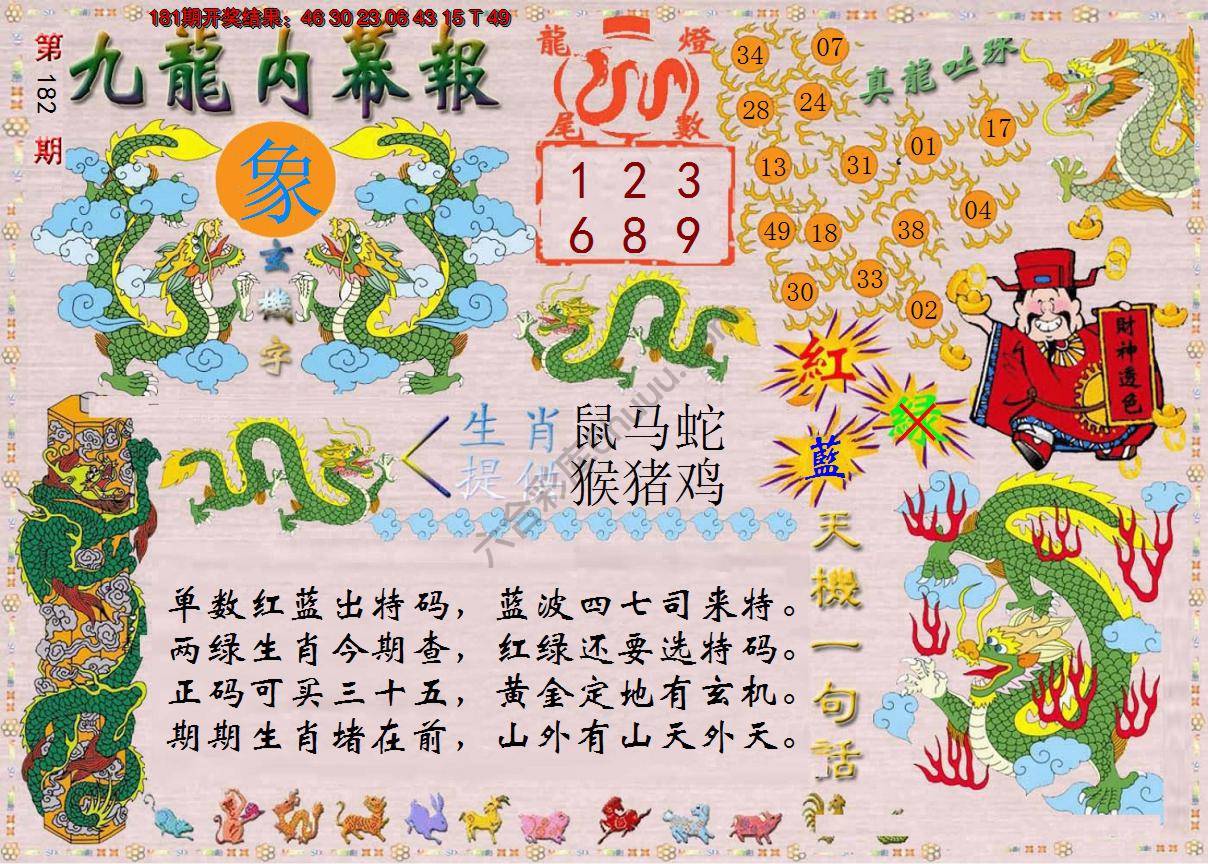 181期开奖结果：46 30 23 06 43 15 T 49
第182期
九龍内幕報
象
玄機字
龍燈
尾數
1 2 3
6 8 9
真龍吐珠
34 07
28 24
13 31 01 17
49 18 38 04
30 33 02
財神透色
紅
绿
藍
生肖 鼠马蛇
提供 猴猪鸡
天機一句话
单数红蓝出特码，蓝波四七司来特。
两绿生肖今期查，红绿还要选特码。
正码可买三十五，黄金定地有玄机。
期期生肖堵在前，山外有山天外天。